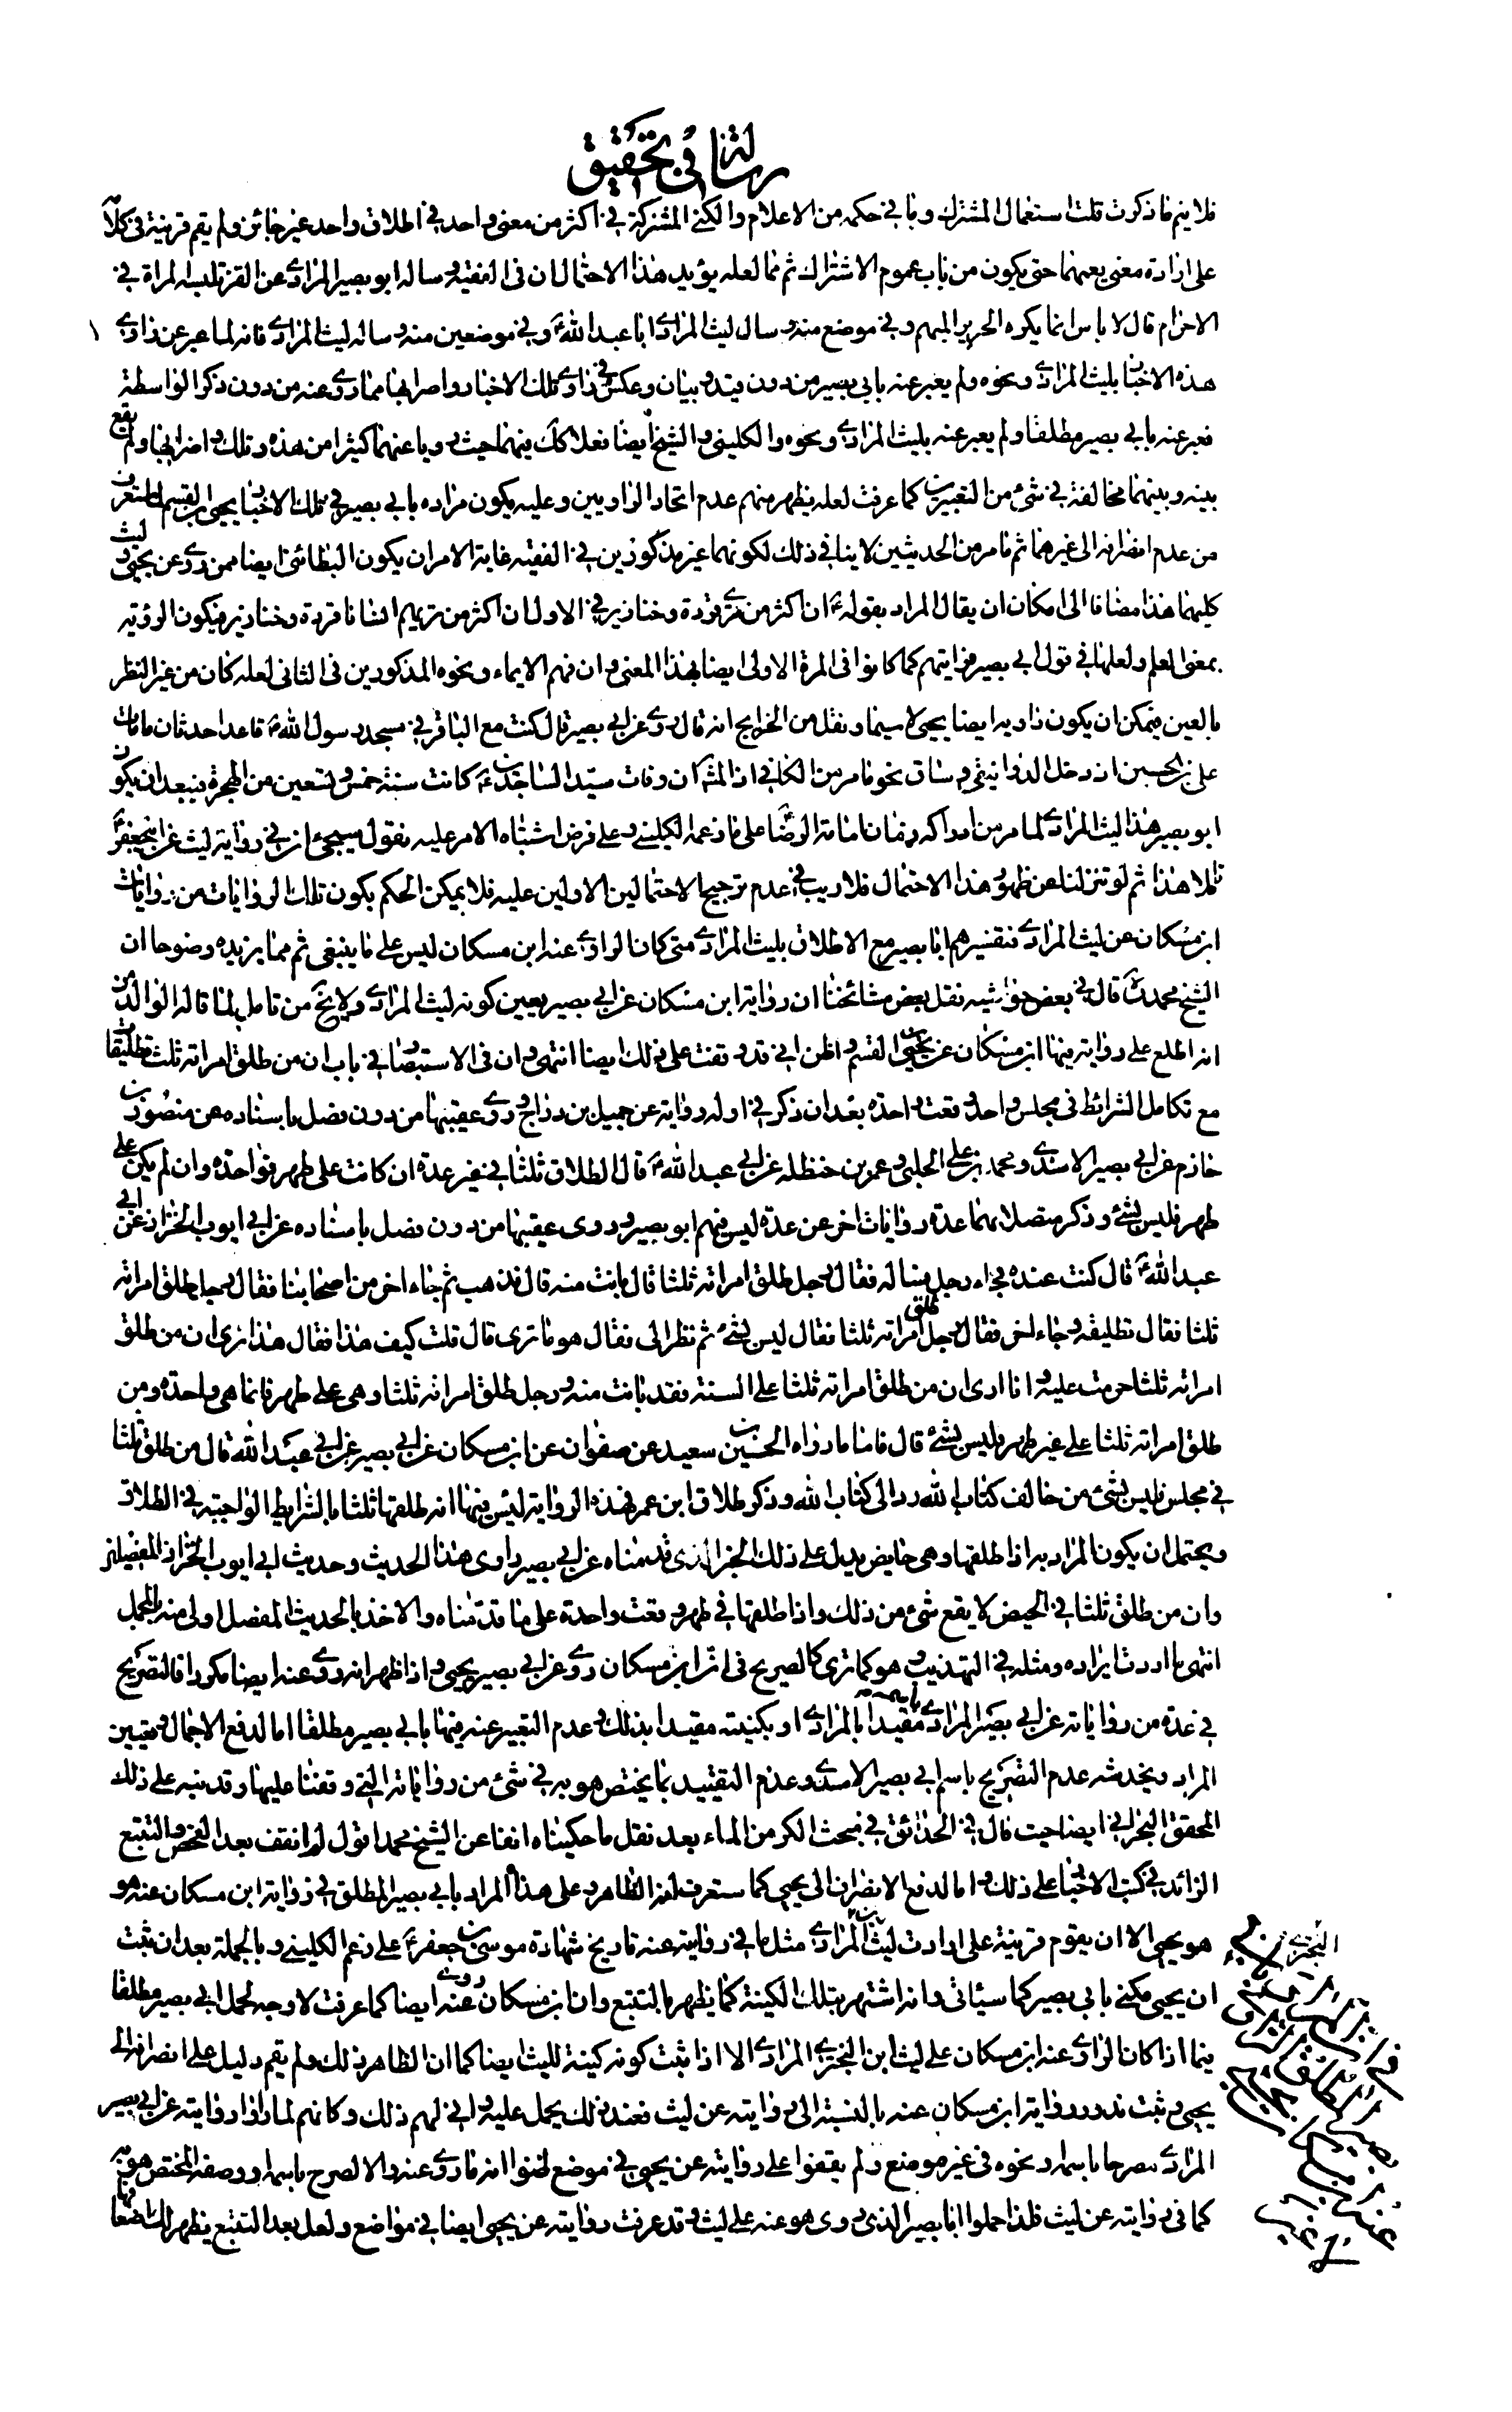 رسالة في تحقيق
فلا يتم ما ذكرت قلت استعمال المشترك وما في حكمه من الاعلام والكنى المشتركة في اكثر من معنى واحد في اطلاق واحد غير جائز ولم يقم قرينة في كلا
على ارادة معنى يعمهما حتى يكون من باب عموم الاشتراك ثم مما لعله يؤيد هذا الاحتمال ان في الفقيه وساله ابو بصير المرادي عن القز تلبسه المراة في
الاحرام قال لا باس انما يكره الحرير المبهم وفي موضع منه وسال ليث المرادي ابا عبد الله ع وفي موضعين منه وساله ليث المرادي فانه لما عبر عن راوي
هذه الاخبار بليث المرادي ونحوه ولم يعبر عنه بابي بصير من دون قيد وبيان وعكس في راوي تلك الاخبار واضرابها مما روى عنه من دون ذكر الواسطة
فعبر عنه بابي بصير مطلقا ولم يعبر عنه بليث المرادي ونحوه والكليني والشيخ ايضا فعلا كك فيهما حيث رويا عنهما كثيرا من هذه وتلك واضرابها ولم يقع
بينه وبينهما مخالفة في شئ من التعبيرين كما عرفت لعله يظهر منهم عدم اتحاد الراويين وعليه يكون مراده بابي بصير في تلك الاخبار يحيى بن القسم لما ستعرف
من عدم انصرافه الى غيرهما ثم ما مر من الحديثين لا ينافي ذلك لكونهما غير مذكورين في الفقيه غاية الامر ان يكون البطائني ايضا ممن روى عن يحيى وليث
كليهما هذا مضافا الى امكان ان يقال المراد بقوله ع ان اكثر من ترى قردة وخنازير في الاول ان اكثر من تريهم انسانا قردة وخنازير فيكون الرؤية
بمعنى العلم ولعلها في قول ابي بصير فرايتهم كما كانوا في المرة الاولى ايضا بهذا المعنى وان فهم الايماء ونحوه المذكورين في الثاني لعله كان من غير النظر
بالعين فيمكن ان يكون راويه ايضا يحيى لا سيما ونقل من الخرايج انه قال روى عن ابي بصير قال كنت مع الباقر في مسجد رسول الله ص قاعدا حدثان ما مات
علي بن الحسين اذ دخل الدوانيقي وساق نحو ما مر من الكافي اذ المشهور ان وفات سيد الساجدين ع كانت سنة خمس وتسعين من الهجرة فيبعد ان يكون
ابو بصير هذا ليث المرادي لما مر من ادراكه زمان امامة الرضا ع على ما زعمه الكليني وعلى فرض اشتباه الامر عليه نقول سيجئ ان في رواية ليث عن ابي جعفر ع
تاملا هذا ثم لو تنزلنا عن ظهور هذا الاحتمال فلا ريب في عدم ترجيح الاحتمالين الاولين عليه فلا يمكن الحكم بكون تلك الروايات من روايات
ابن مسكان عن ليث المرادي فتفسيرهم ابا بصير مع الاطلاق بليث المرادي متى كان الراوي عنه ابن مسكان ليس على ما ينبغي ثم مما يزيده وضوحا ان
الشيخ محمد ره قال في بعض حواشيه نقل بعض مشائخنا ان رواية ابن مسكان عن ابي بصير يعين كونه ليث المرادي ولا يخ من تامل لما قاله الوالد من
انه اطلع على رواية فيها ابن مسكان عن يحيى بن القسم واظن اني قد وقفت على ذلك ايضا انتهى وان في الاستبصار في باب ان من طلق امراته ثلث تطليقات
مع تكامل الشرائط في مجلس واحد وقعت واحدة بعد ان ذكر في اوله رواية عن جميل بن دراج وروى عقيبها من دون فصل باسناده عن منصور بن
حازم عن ابي بصير الاسدي ومحمد بن علي الحلبي وعمر بن حنظلة عن ابي عبد الله ع قال الطلاق ثلثا في غير عدة ان كانت على طهر فواحدة وان لم يكن على
طهر فليس بشئ وذكر متصلا بهما عدة روايات اخر عن عدة ليس فيهم ابو بصير وروى عقيبها من دون فصل باسناده عن ابي ايوب الخزاز عن ابي
عبد الله ع قال كنت عنده فجاء رجل فساله فقال رجل طلق امراته ثلثا قال بانت منه قال فذهب ثم جاء اخر من اصحابنا فقال رجل طلق امراته
ثلثا فقال تطليقة وجاء اخر فقال رجل طلق امراته ثلثا فقال ليس بشئ ثم نظر الى فقال هو ما ترى قال قلت كيف هذا فقال هذا يرى ان من طلق
امراته ثلثا حرمت عليه وانا ارى ان من طلق امراته ثلثا على السنة فقد بانت منه ورجل طلق امراته ثلثا وهي على طهر فانما هي واحدة ومن
طلق امراته ثلثا على غير طهر فليس بشئ قال فاما ما رواه الحسين بن سعيد عن صفوان عن ابن مسكان عن ابي بصير عن ابي عبد الله قال من طلق ثلثا
في مجلس فليس بشئ من خالف كتاب الله رد الى كتاب الله وذكر طلاق ابن عمر فهذه الرواية ليس فيها انه طلقها ثلثا بالشرايط الواجبة في الطلاق
ويحتمل ان يكون المراد به اذا طلقها وهي حايض يدل على ذلك الخبر الذي قدمناه عن ابي بصير راوي هذا الحديث وحديث ابي ايوب الخزاز المفصلين
وان من طلق ثلثا في الحيض لا يقع شئ من ذلك واذا طلقها في طهر وقعت واحدة على ما قدمناه والاخذ بالحديث المفصل اولى منه بالمجمل
انتهى ما اردنا ايراده ومثله في التهذيب وهو كما ترى كالصريح في ان ابن مسكان روى عن ابي بصير يحيى واذا ظهر انه روى عنه ايضا مكررا فالتصريح
في عدة من رواياته عن ابي بصير المرادي باسمه مقيدا بالمرادي او بكنيته مقيدا بذلك وعدم التعبير عنه فيها بابي بصير مطلقا اما لدفع الاجمال وتعيين
المراد ويخدشه عدم التصريح باسم ابي بصير الاسدي وعدم التقييد بما يختص هو به في شئ من رواياته التي وقفنا عليها وقد نبه على ذلك
المحقق البحراني ايضا حيث قال في الحدائق في مبحث الكر من الماء بعد نقل ما حكيناه انفا عن الشيخ محمد اقول لم نقف بعد الفحص والتتبع
الزائد في كتب الاخبار على ذلك واما لدفع الانصراف الى يحيى كما ستعرف انه الظاهر وعلى هذا المراد بابي بصير المطلق في رواية ابن مسكان عنه هو
هو يحيى الا ان يقوم قرينة على ارادة ليث بن المرادي مثل ما في روايته عنه تاريخ شهادة موسى بن جعفر ع على زعم الكليني وبالجملة بعد ان ثبت
ان يحيى مكنى بابي بصير كما سيأتي وانه اشتهر بتلك الكنية كما يظهر بالتتبع وان ابن مسكان روى عنه ايضا كما عرفت لا وجه لحمل ابي بصير مطلقا
فيما اذا كان الراوي عنه ابن مسكان على ليث ابن البختري المرادي الا اذا ثبت كونه كنية لليث ايضا كما ان الظاهر ذلك ولم يقم دليل على انصرافه الى
يحيى وثبت ندور رواية ابن مسكان عنه بالنسبة الى روايته عن ليث فعند ذلك يحمل عليه وانى لهم ذلك وكانهم لما راوا روايته عن ابي بصير
المرادي مصرحا باسمه ونحوه في غير موضع ولم يقفوا على روايته عن يحيى في موضع ظنوا انه ما روى عنه والا لصرح باسمه او وصفه المختص هو به
كما في روايته عن ليث فلذا حملوا ابا بصير الذي روى هو عنه على ليث وقد عرفت روايته عن يحيى ايضا في مواضع ولعل بعد التتبع يظهر لك اضعافها
البختري